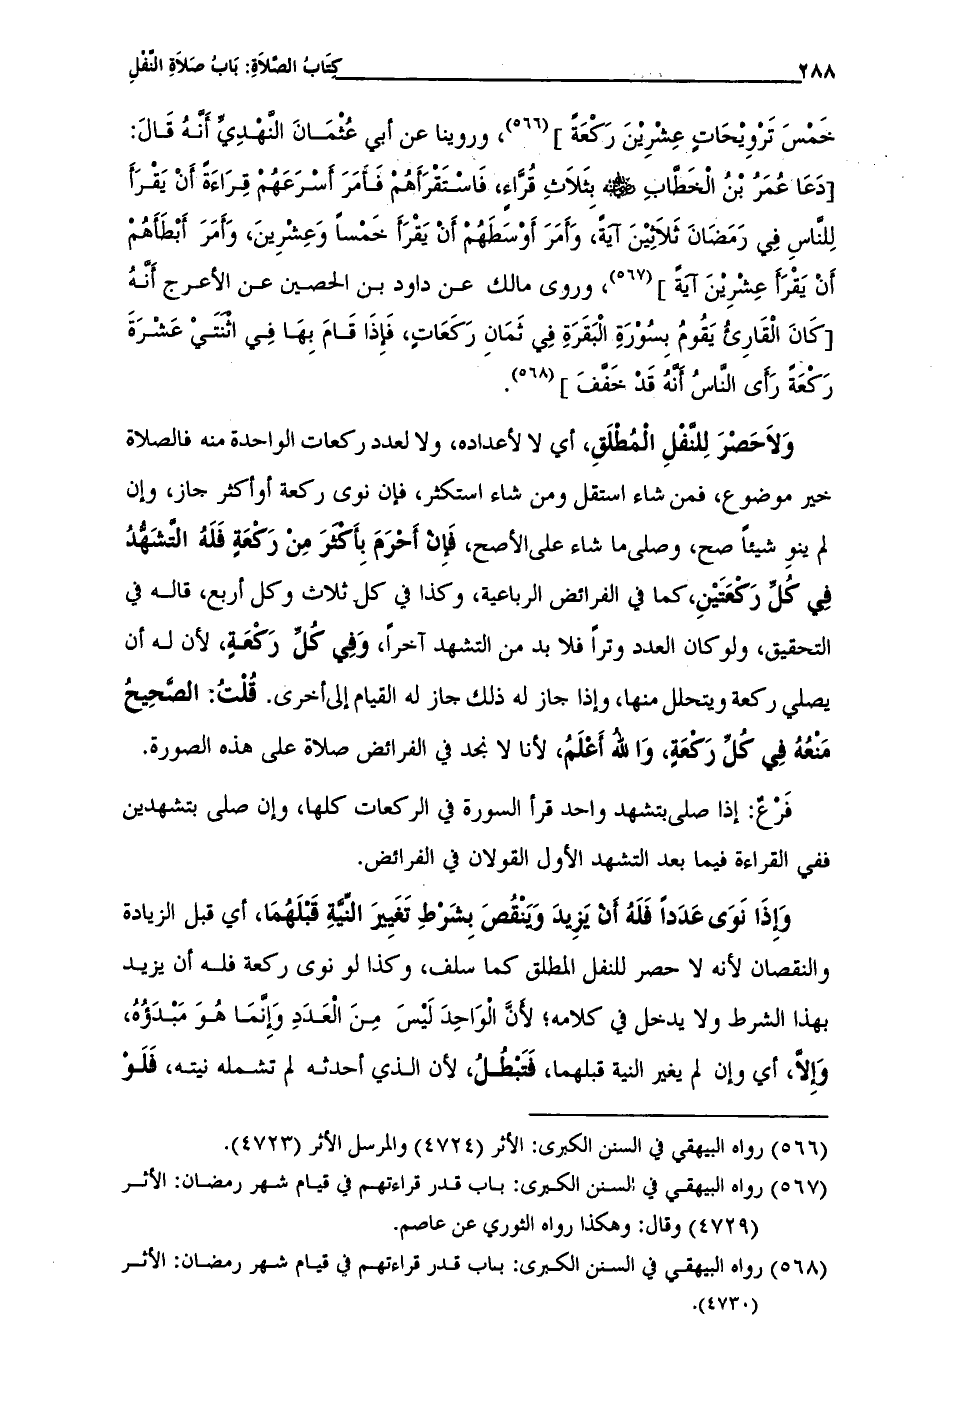 ٢٨٨ كِتَابُ الصَّلاَةِ: بَابُ صَلاَةِ النَّفْلِ
خَمْسَ تَرْوِيْحَاتٍ عِشْرِيْنَ رَكْعَةً ](٥٦٦)، وروينا عن أبي عُثْمَانَ النَّهْدِيِّ أَنَّهُ قَالَ:
[دَعَا عُمَرُ بْنُ الْخَطَّابِ ﷺ بِثَلاَثِ قُرَّاءٍ، فَاسْتَقْرَأَهُمْ فَأَمَرَ أَسْرَعَهُمْ قِرَاءَةً أَنْ يَقْرَأَ
لِلنَّاسِ فِي رَمَضَانَ ثَلاَثِيْنَ آيَةً، وَأَمَرَ أَوْسَطَهُمْ أَنْ يَقْرَأَ خَمْساً وَعِشْرِينَ، وَأَمَرَ أَبْطَأَهُمْ
أَنْ يَقْرَأَ عِشْرِيْنَ آيَةً ](٥٦٧)، وروى مالك عن داود بن الحصين عن الأعرج أَنَّهُ
[كَانَ الْقَارِئُ يَقُومُ بِسُوْرَةِ الْبَقَرَةِ فِي ثَمَانِ رَكَعَاتٍ، فَإِذَا قَامَ بِهَا فِي اثْنَتَيْ عَشْرَةَ
رَكْعَةً رَأَى النَّاسُ أَنَّهُ قَدْ خَفَّفَ ](٥٦٨).
وَلاَحَصْرَ لِلنَّفْلِ الْمُطْلَقِ، أي لا لأعداده، ولا لعدد ركعات الواحدة منه فالصلاة
خير موضوع، فمن شاء استقل ومن شاء استكثر، فإن نوى ركعة أو أكثر جاز، وإن
لم ينو شيئاً صح، وصلى ما شاء على الأصح، فَإِنْ أَحْرَمَ بِأَكْثَرَ مِنْ رَكْعَةٍ فَلَهُ التَّشَهُّدُ
فِي كُلِّ رَكْعَتَيْنِ، كما في الفرائض الرباعية، وكذا في كل ثلاث وكل أربع، قاله في
التحقيق، ولو كان العدد وتراً فلا بد من التشهد آخراً، وَفِي كُلِّ رَكْعَةٍ، لأن له أن
يصلي ركعة ويتحلل منها، وإذا جاز له ذلك جاز له القيام إلى أخرى. قُلْتُ: الصَّحِيحُ
مَنْعُهُ فِي كُلِّ رَكْعَةٍ، وَاللَّهُ أَعْلَمُ، لأنا لا نجد في الفرائض صلاة على هذه الصورة.
فَرْعٌ: إذا صلى بتشهد واحد قرأ السورة في الركعات كلها، وإن صلى بتشهدين
ففي القراءة فيما بعد التشهد الأول القولان في الفرائض.
وَإِذَا نَوَى عَدَداً فَلَهُ أَنْ يَزِيدَ وَيَنْقُصَ بِشَرْطِ تَغْيِيرِ النِّيَّةِ قَبْلَهُمَا، أي قبل الزيادة
والنقصان لأنه لا حصر للنفل المطلق كما سلف، وكذا لو نوى ركعة فله أن يزيد
بهذا الشرط ولا يدخل في كلامه؛ لأَنَّ الْوَاحِدَ لَيْسَ مِنَ الْعَدَدِ وَإِنَّمَا هُوَ مَبْدَؤُهُ،
وَإِلاَّ، أي وإن لم يغير النية قبلهما، فَتَبْطُلُ، لأن الذي أحدثه لم تشمله نيته، فَلَوْ
(٥٦٦) رواه البيهقي في السنن الكبرى: الأثر (٤٧٢٤) والمرسل الأثر (٤٧٢٣).
(٥٦٧) رواه البيهقي في السنن الكبرى: باب قدر قراءتهم في قيام شهر رمضان: الأثر
(٤٧٢٩) وقال: وهكذا رواه الثوري عن عاصم.
(٥٦٨) رواه البيهقي في السنن الكبرى: باب قدر قراءتهم في قيام شهر رمضان: الأثر
(٤٧٣٠).